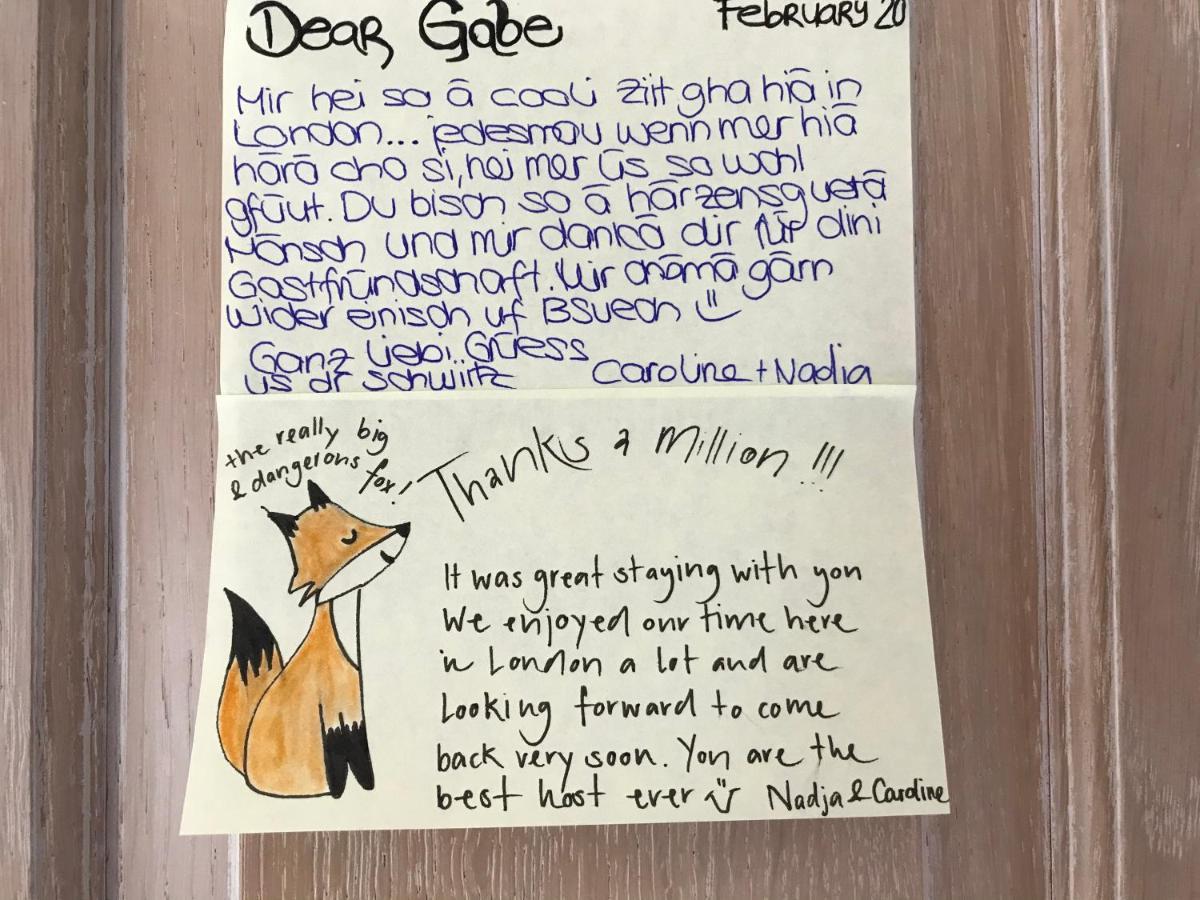 Dear Gabe
February 20
Mir hei so ä cooli Ziit gha hiä in
London... jedesmau wenn mer hiä
härä cho si, hei mer üs so wohl
gfüut. Du bisch so ä härzensguetä
Mönsch und mir dankä dir für dini
Gastfründschaft. Mir chömä gärn
wider einisch uf Bsuech
Ganz liebi Grüess
us dr Schwiiz
Caroline + Nadja
the really big
& dangerous fox!
Thanks a Million !!!
It was great staying with you
We enjoyed our time here
in London a lot and are
Looking forward to come
back very soon. You are the
best host ever Nadja & Caroline